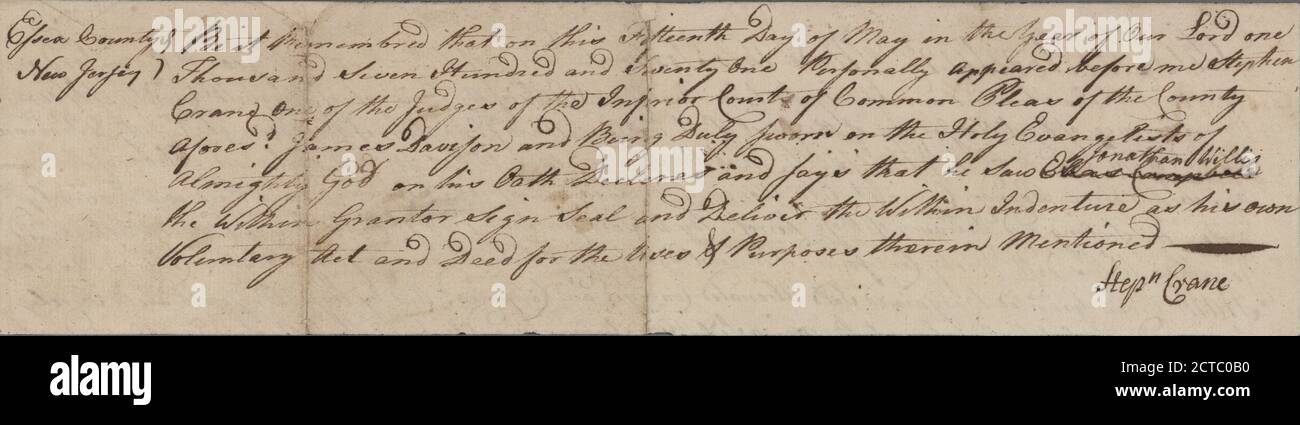 Essex County } Be it Remembred that on this Fifteenth Day of May in the Year of Our Lord one
New Jersey } Thousand Seven Hundred and Seventy One Personally appeared before me Stephen
Crane One of the Judges of the Inferior Court of Common Pleas of the County
afores.d James Davison and Being Duly sworn on the Holy Evangelists of
Jonathan Willis
Almighty God on his Oath Declares and says that he saw Elias Campbell
the within Grantor Sign Seal and Deliver the Within Indenture as his own
Voluntary Act and Deed for the Uses & Purposes therein Mentioned
Stepn Crane
alamy
Image ID: 2CTC0B0
www.alamy.com